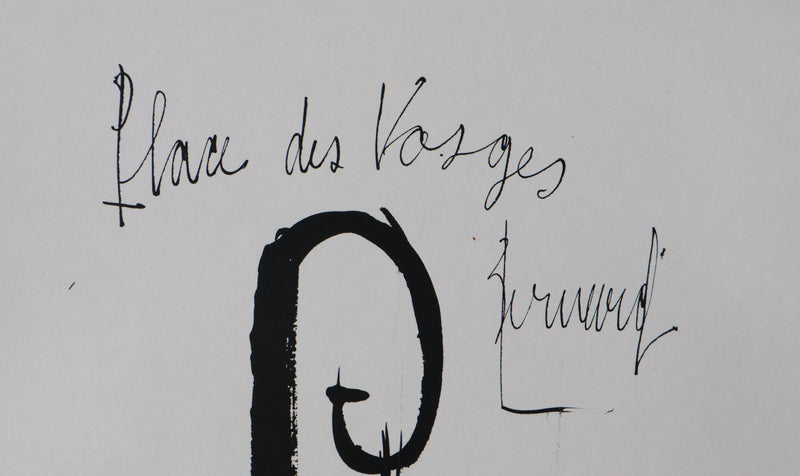 Place des Vosges
Bernard